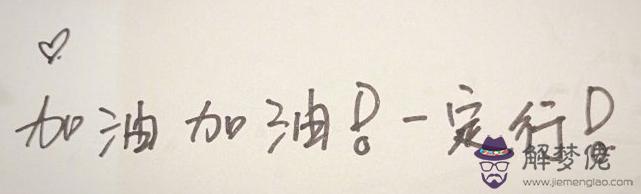 加油加油！一定行！
解梦佬
www.jiemenglao.com